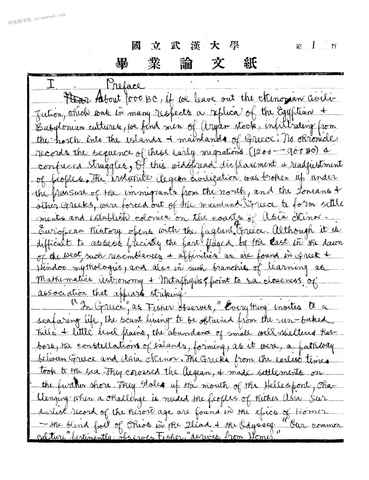 國立武漢大學
第 1 頁
畢業論文紙
I. Preface
About 1000 BC, if we leave out the Minoan Civili-
zation, which was in many respects a replica of the Egyptian &
Babylonian cultures, we find men of Aryan stock, infiltrating from
the north into the islands & mainlands of Greece. No chronicle
records the sequence of these early migrations (1200-900 BC) &
confused struggles, of this widespread displacement & readjustment
of peoples. The Aegean civilization was broken up under
the pressure of the immigrants from the north, and the Ionians &
other Greeks, were forced out of the mainland Greece to form settle
ments and establish colonies on the coasts of Asia Minor.
European History opens with the Greece. Although it is
difficult to assess precisely the part played by the East in the dawn
of the West, such resemblances & affinities as are found in Greek &
Hindoo mythologies, and also in such branches of learning as
Mathematics Astronomy & Metaphysics, point to a closeness of
association that appears striking.
"In Greece", as Fisher observes, "Everything invites to a
seafaring life, the scant living to be obtained from the un-baked
hills & little plains, the abundance of small well sheltered Har-
bors, the constellations of islands, forming, as it were, a pathway
between Greece and Asia Minor. The Greeks from the earliest times
took to the sea. They crossed the Aegean, & made settlements on
the further shore. They stole up the mouth of the Hellespont, cha-
llenging when a challenge is needed the peoples of Hither Asia. Our
earliest record of the age are found in the epics of Homer
— the blind poet of Chios in the Iliad & the Odyssey. "Our common
culture," pertinently observes Fisher, "derives from Homer."